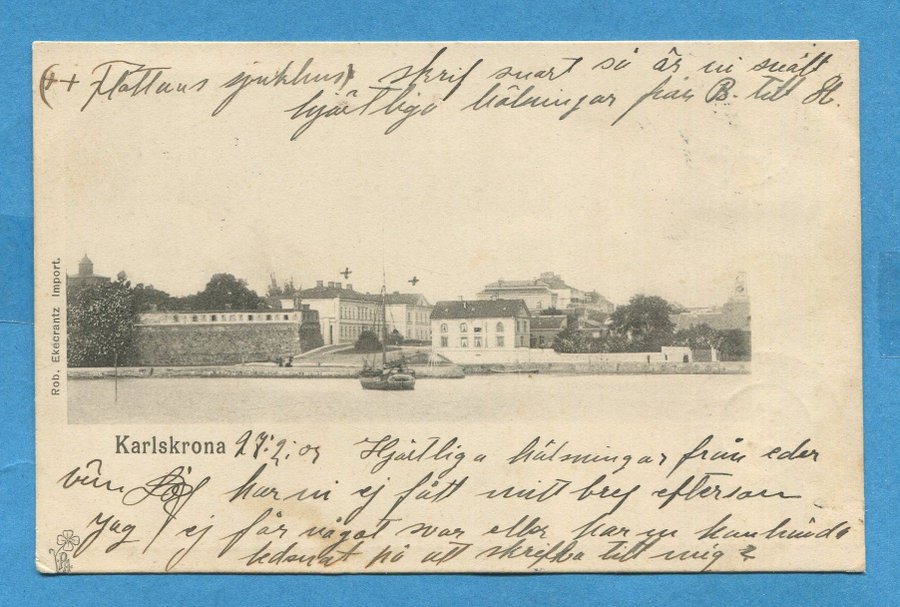 (++ Flottans sjukhus) skrif snart så är ni snäll
hjärtliga hälsningar från B. till H.
Rob. Ekecrantz Import.
Karlskrona
Hjärtliga hälsningar från eder
vän har ni ej fått mitt bref efterson
Jag ej får något svar eller har ni kanhända
ledsnat på att skrifva till mig?